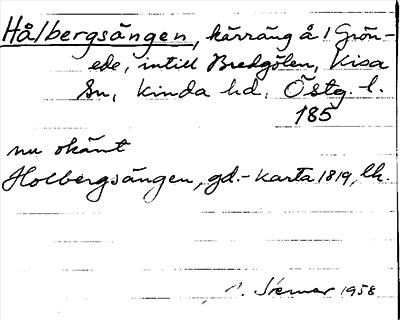 Hålbergsängen, kärräng å 1 Grön-
ede, intill Bredgölen, Kisa
sn, Kinda hd, Östg. l.
185
nu okänt
Holbergsängen, gd.-karta 1819, lk.
1958